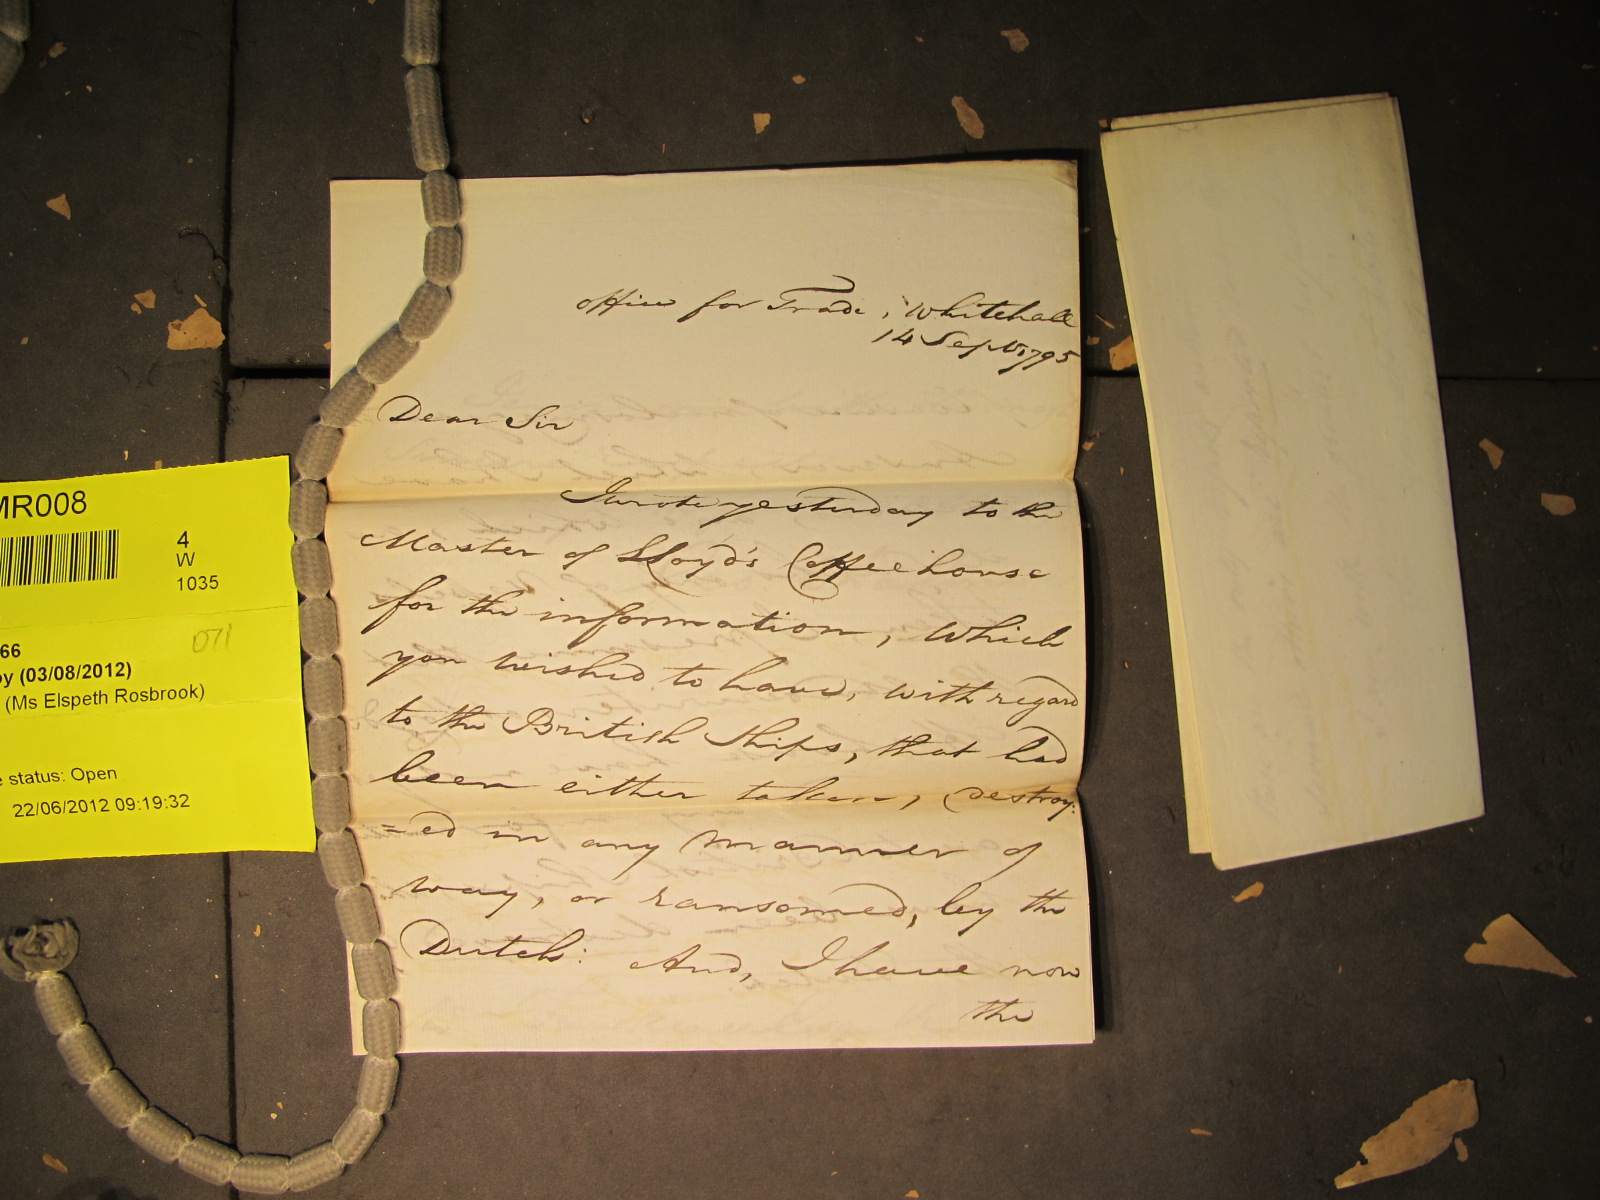 Office for Trade, Whitehall
14 Sept. 1795
Dear Sir
I wrote yesterday to the
Master of Lloyd's Coffeehouse
for the information, which
you wished to have, with regard
to the British Ships, that had
been either taken, destroy:
=ed in any manner of
way, or ransomed, by the
Dutch: And, I have now
the
MR008
4
W
1035
071
66
by (03/08/2012)
(Ms Elspeth Rosbrook)
status: Open
22/06/2012 09:19:32